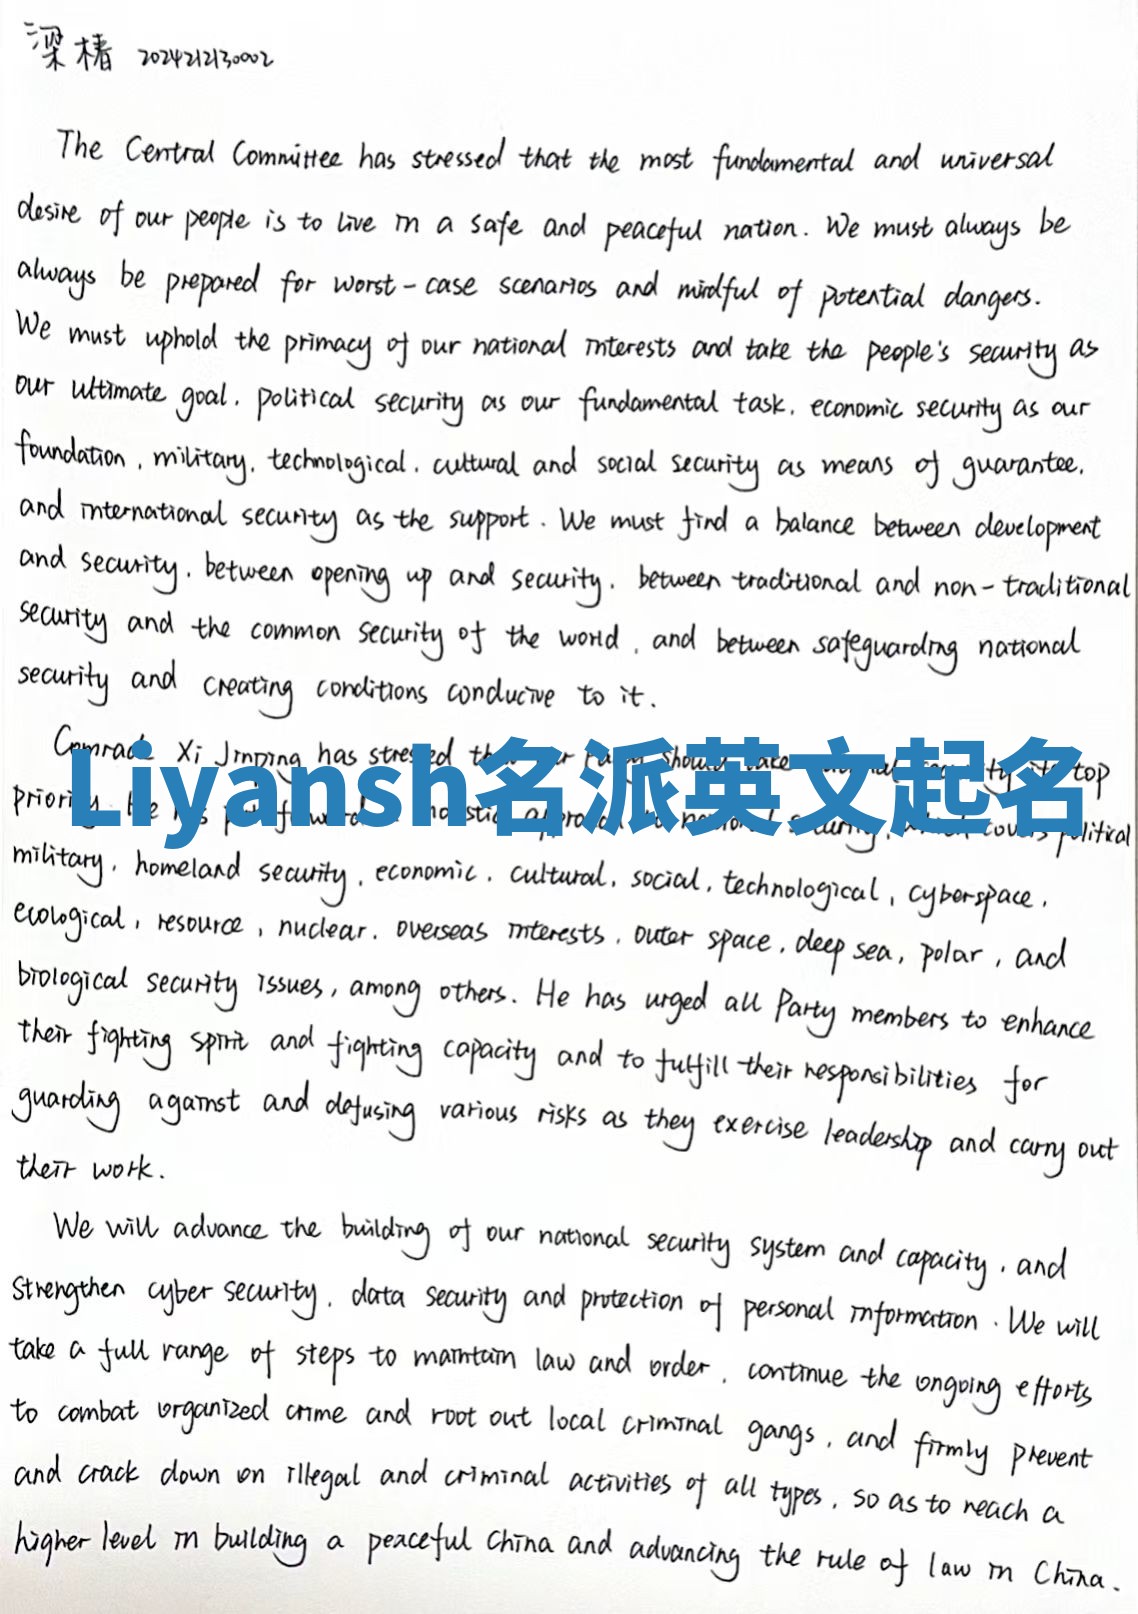 梁椿 2024212130002
The Central Committee has stressed that the most fundamental and universal
desire of our people is to live in a safe and peaceful nation. We must always be
always be prepared for worst-case scenarios and mindful of potential dangers.
We must uphold the primacy of our national interests and take the people's security as
our ultimate goal, political security as our fundamental task, economic security as our
foundation, military, technological, cultural and social security as means of guarantee,
and international security as the support. We must find a balance between development
and security, between opening up and security, between traditional and non-traditional
security and the common security of the world, and between safeguarding national
security and creating conditions conducive to it.
Comrade Xi Jinping has stressed top
Liyansh名派英文起名
political
military, homeland security, economic, cultural, social, technological, cyberspace,
ecological, resource, nuclear, overseas interests, outer space, deep sea, polar, and
biological security issues, among others. He has urged all Party members to enhance
their fighting spirit and fighting capacity and to fulfill their responsibilities for
guarding against and defusing various risks as they exercise leadership and carry out
their work.
We will advance the building of our national security system and capacity, and
strengthen cyber security, data security and protection of personal information. We will
take a full range of steps to maintain law and order, continue the ongoing efforts
to combat organized crime and root out local criminal gangs, and firmly prevent
and crack down on illegal and criminal activities of all types, so as to reach a
higher level in building a peaceful China and advancing the rule of law in China.